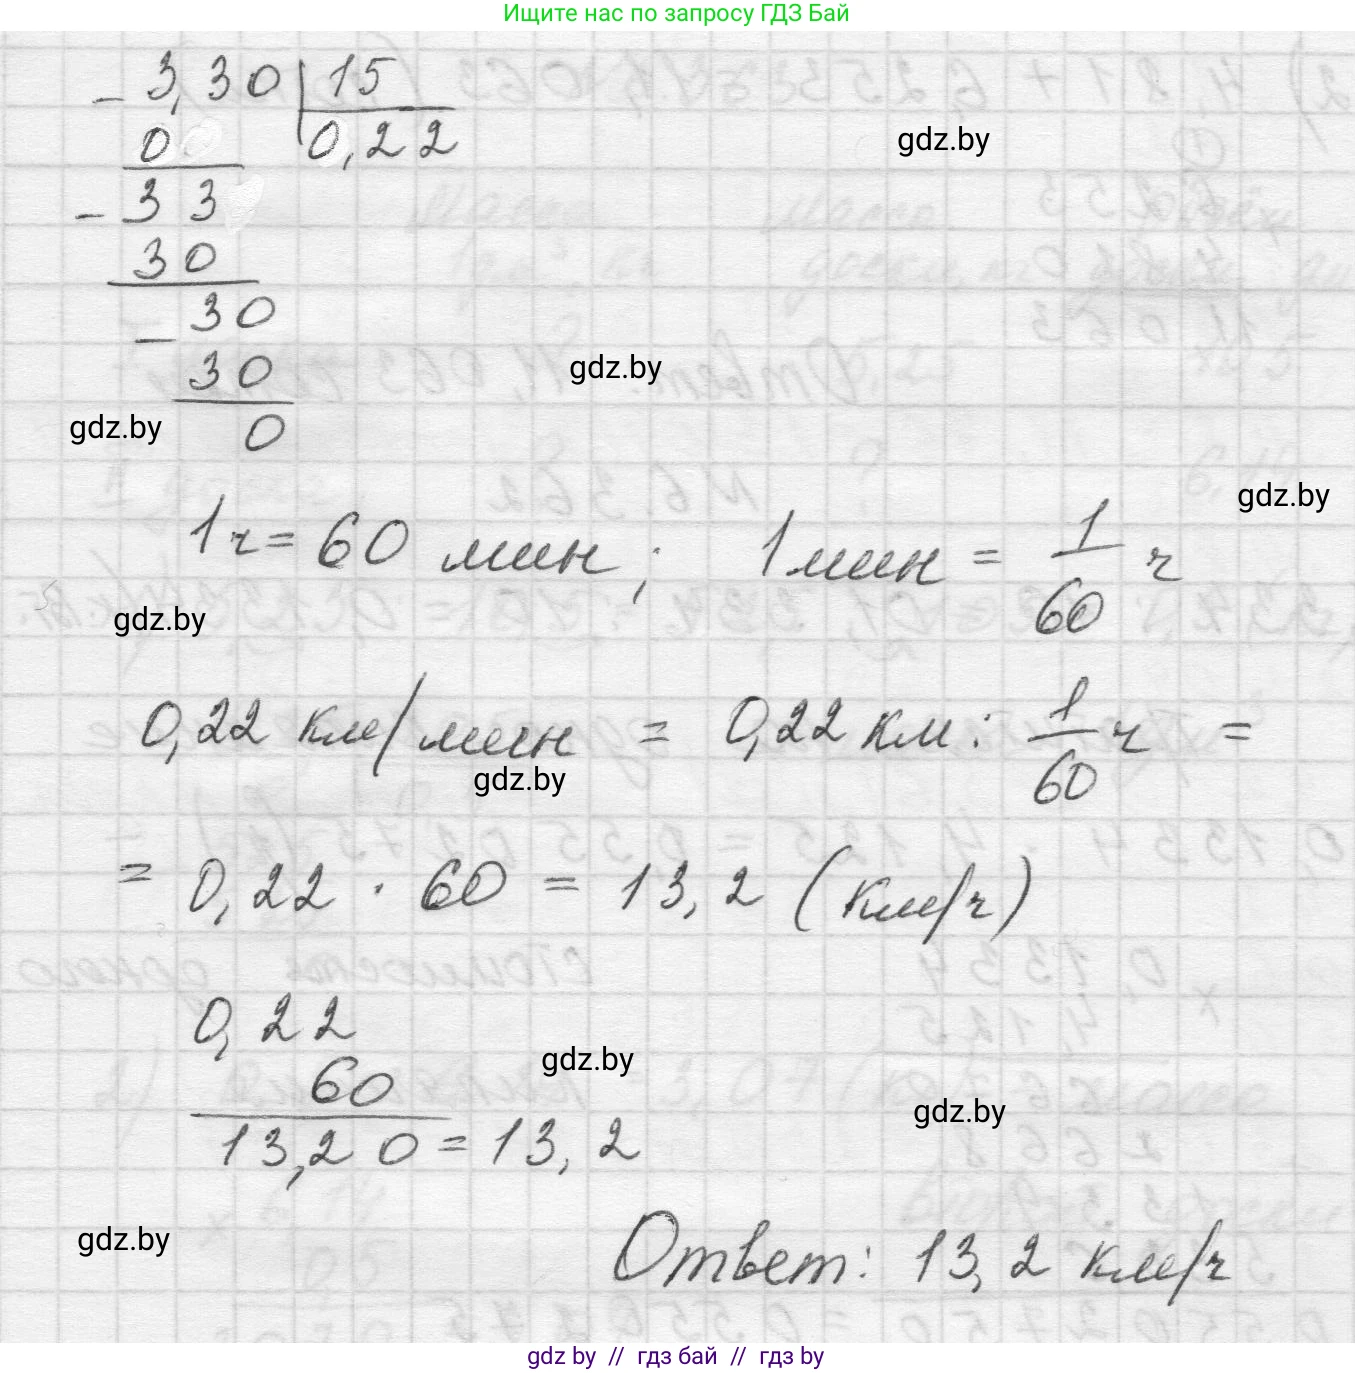 Ищите нас по запросу ГДЗ Бай
- 3,30 | 15
0 | 0,22
gdz.by
- 33
30
- 30
gdz.by
30
gdz.by
0
gdz.by
1ч = 60 мин; 1 мин = 1/60 ч
gdz.by
0,22 км/мин = 0,22 км : 1/60 ч =
gdz.by
= 0,22 · 60 = 13,2 (км/ч)
0,22
gdz.by
60
gdz.by
13,20 = 13,2
gdz.by
Ответ: 13,2 км/ч
gdz by // гдз бай // гдз by